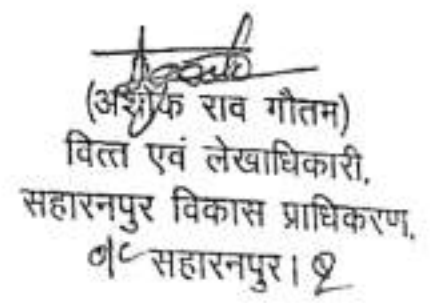 (अशोक राव गौतम)
वित्त एवं लेखाधिकारी,
सहारनपुर विकास प्राधिकरण,
सहारनपुर।